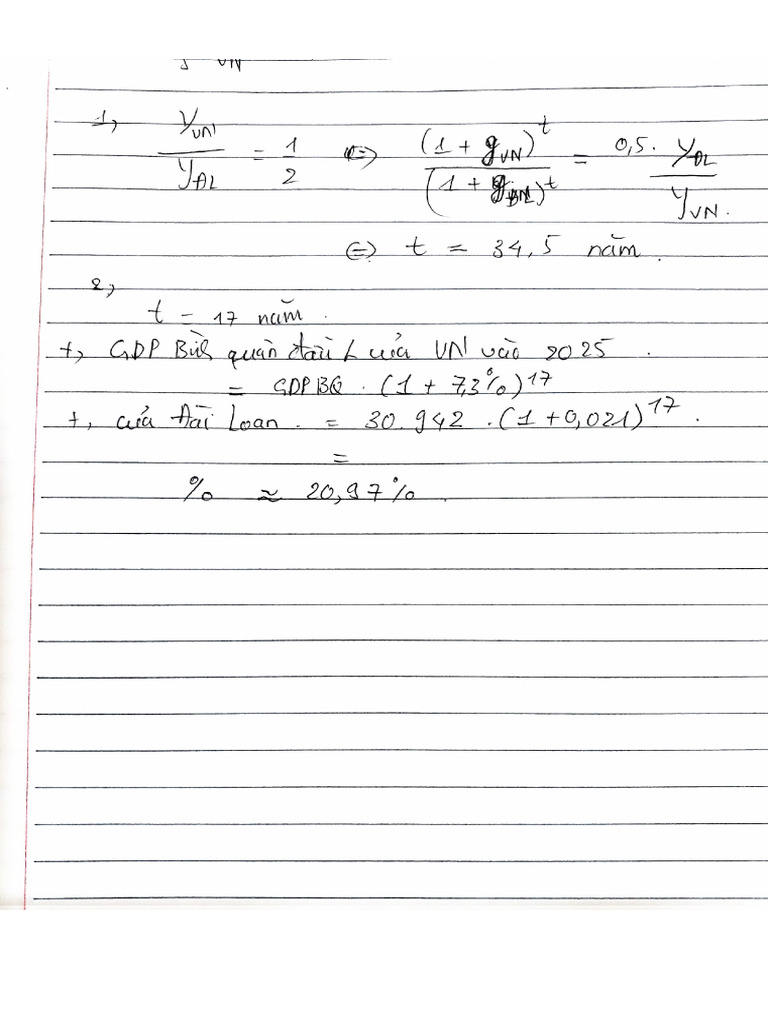 y VN
1, Y_VN / Y_ĐL = 1/2 <=> (1 + g_VN)^t / (1 + g_ĐL)^t = 0,5 . Y_ĐL / Y_VN .
<=> t = 34,5 năm .
2,
t = 17 năm .
+, GDP Bình quân đầu của VN vào 2025 .
= GDPBQ . (1 + 7,3%)^17
+, của Đài Loan . = 30.942 . (1 + 0,021)^17 .
=
% ≈ 20,97% .